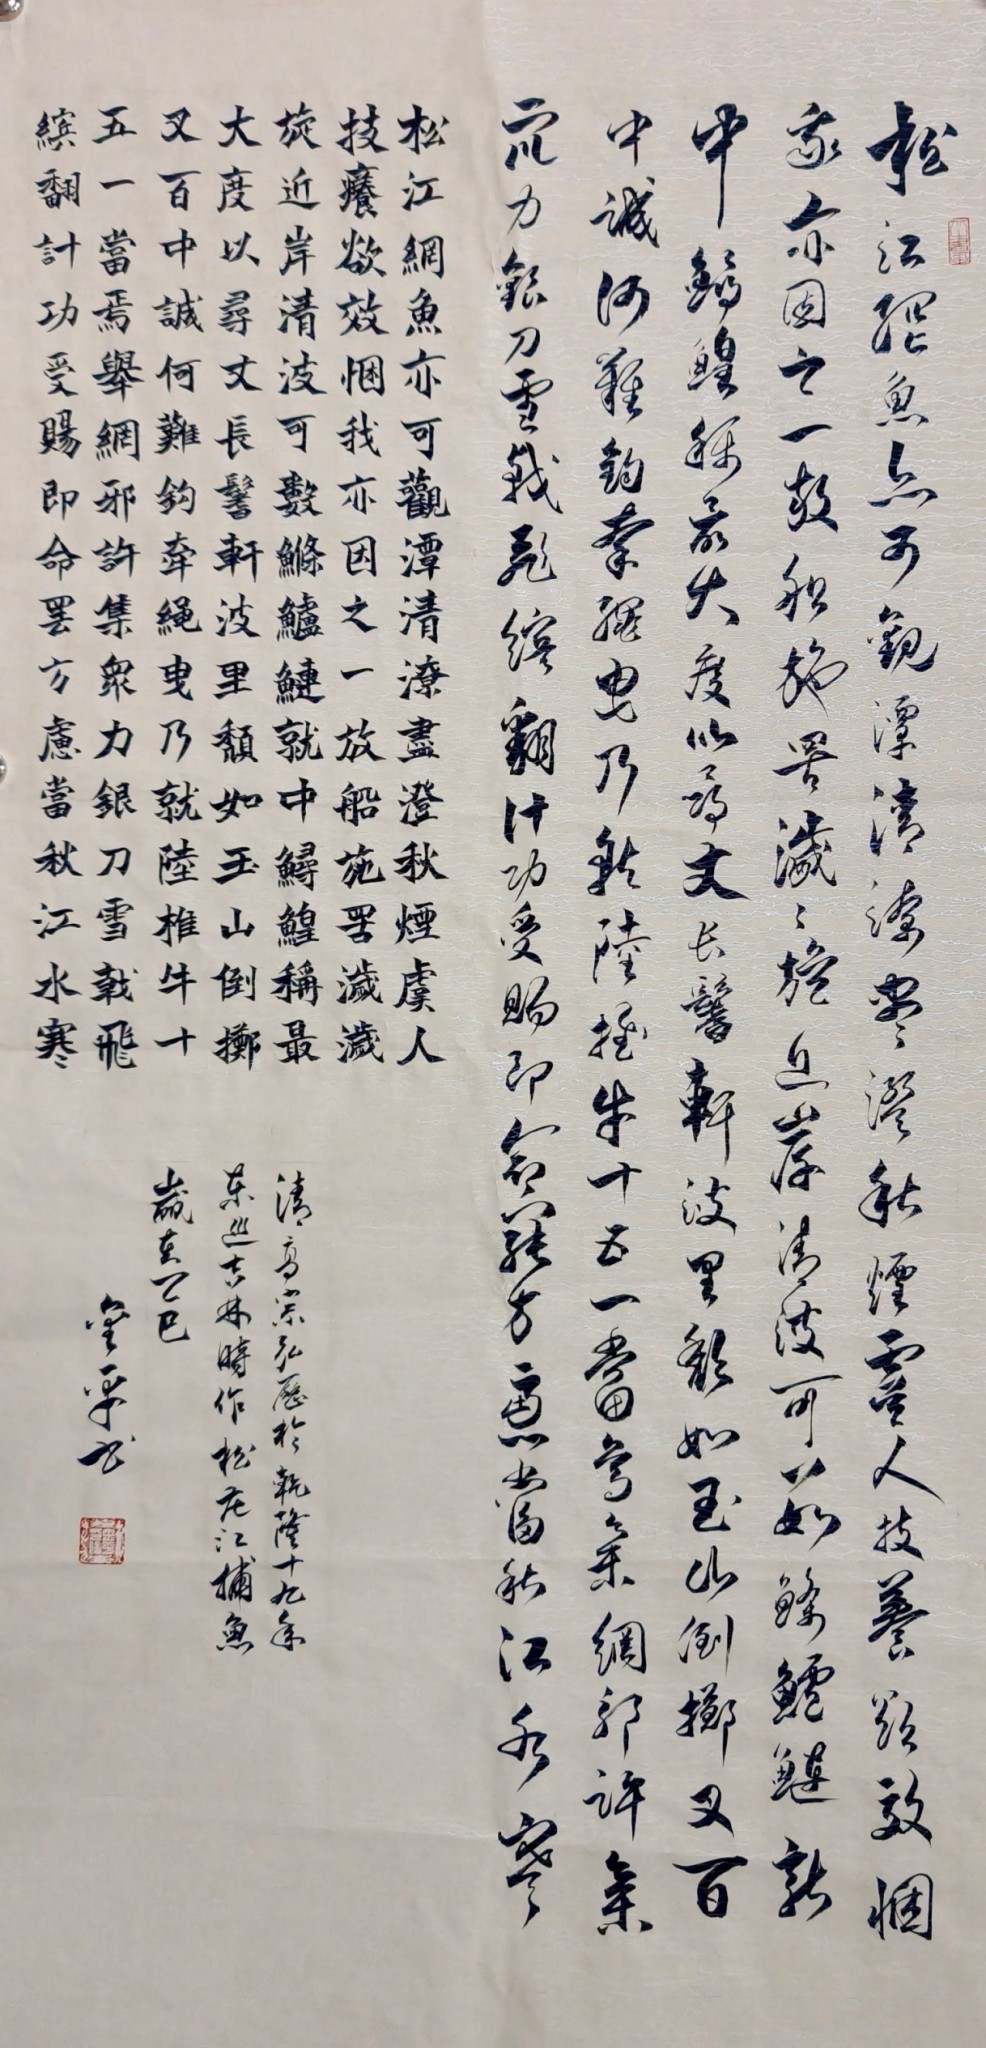 松江網魚亦可觀潭清潦盡澄秋煙虞人技養欲效悃
我亦因之一放船施罟濊濊旋近岸清波可數鰷鱸鰱就
中鱘鰉稱最大度以尋丈长鬐軒波里頹如玉山倒擲叉百
中誠何難鈎牽繩曳乃就陸椎牛十五一當焉集網邪許集
眾力銀刀雪戟飛繽翻计功受賜即命罷方慮當秋江水寒
松江網魚亦可觀潭清潦盡澄秋煙虞人
技癢欲效悃我亦因之一放船施罟濊濊
旋近岸清波可數鰷鱸鰱就中鱘鰉稱最
大度以尋丈長鬐軒波里頹如玉山倒擲
叉百中誠何難鈎牽繩曳乃就陸椎牛十
五一當焉舉網邪許集眾力銀刀雪戟飛
繽翻計功受賜即命罢方慮當秋江水寒
清高宗弘曆於乾隆十九年
東巡吉林時作松花江捕魚
歲在乙巳
金平书